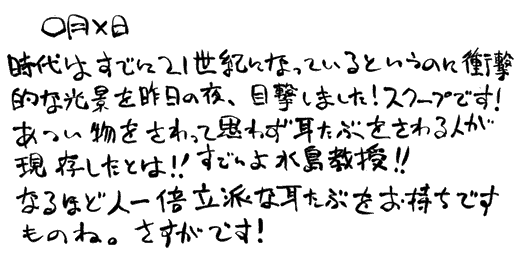 〇月×日
時代はすでに21世紀になっているというのに衝撃
的な光景を昨日の夜、目撃しました!スクープです!
あつい物をさわって思わず耳たぶをさわる人が
現存したとは!!すごいよ水島教授!!
なるほど人一倍立派な耳たぶをお持ちです
ものね。さすがです!